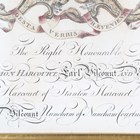 VERBIS
The Right Honourable
ON HARCOURT Earl Viscount AND
Harcourt of Stanton Harcourt
Viscount Nuneham of Nuneham